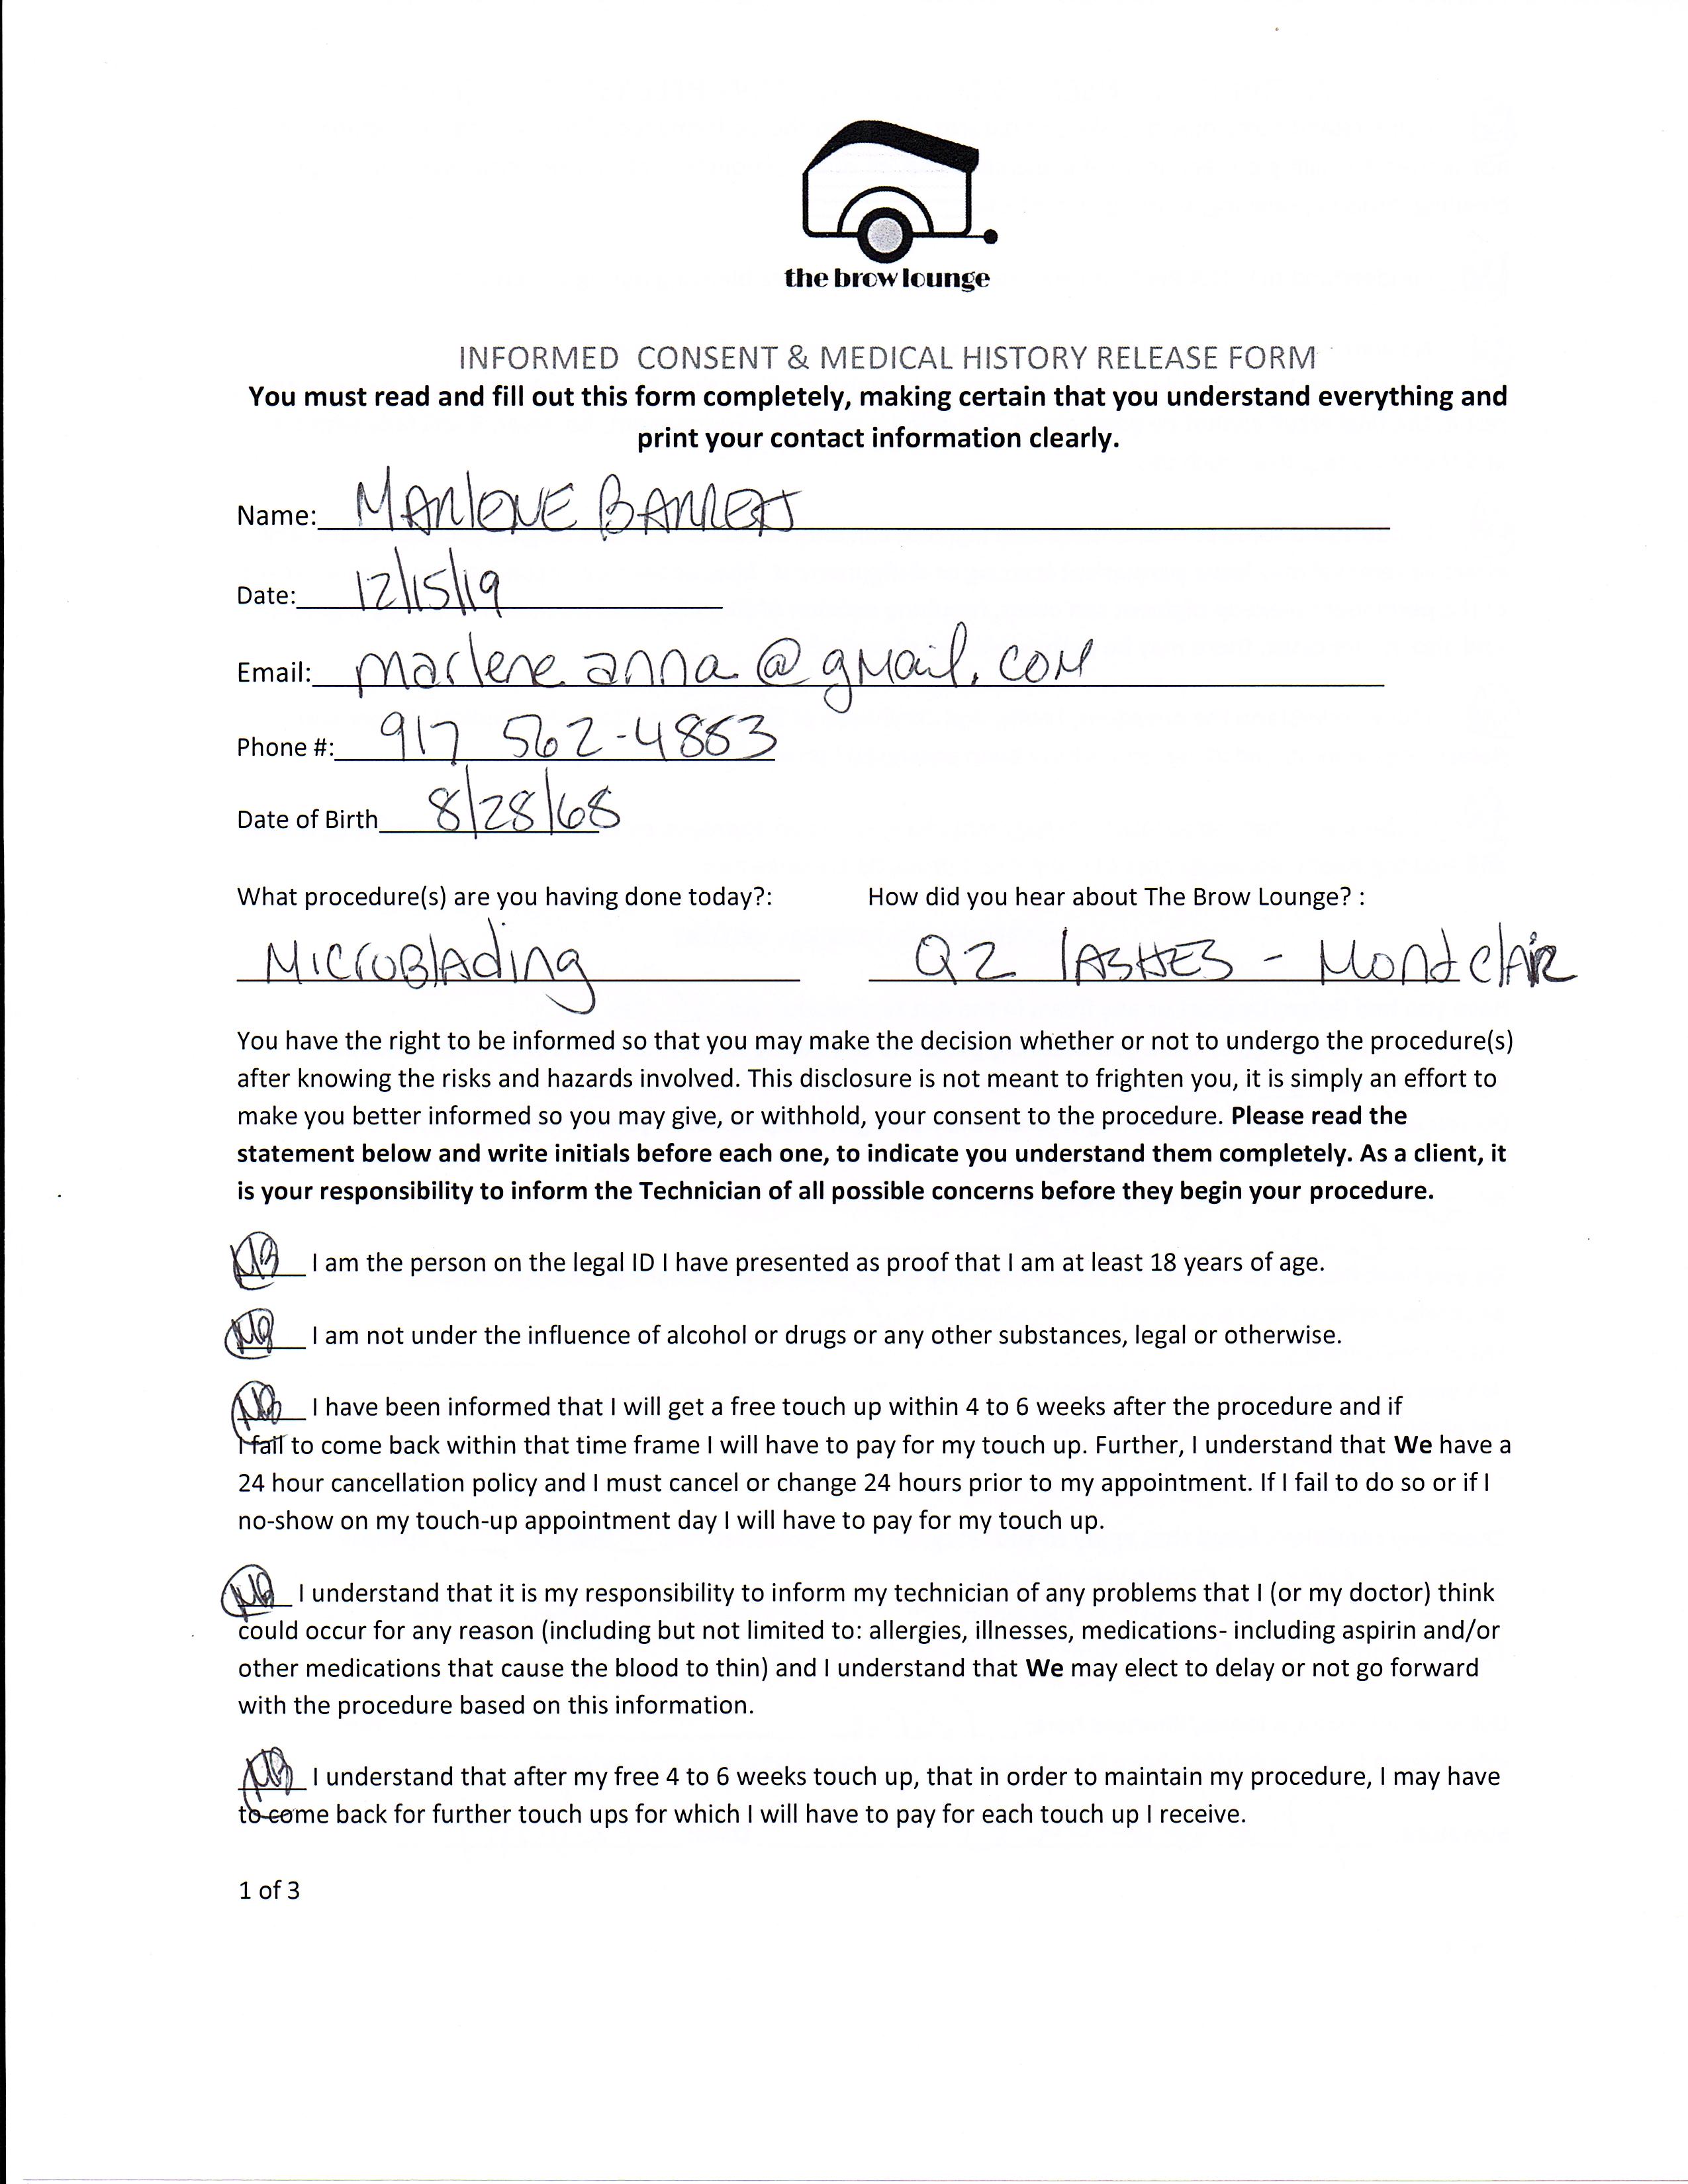 the brow lounge
INFORMED CONSENT & MEDICAL HISTORY RELEASE FORM
You must read and fill out this form completely, making certain that you understand everything and
print your contact information clearly.
Name: MARlENE BARRETT
Date: 12/15/19
Email: marlene.anna@gmail.com
Phone #: 917 562-4883
Date of Birth 8/28/68
What procedure(s) are you having done today?: How did you hear about The Brow Lounge? :
MicroBlAding Q2 lASHES - MontclAiR
You have the right to be informed so that you may make the decision whether or not to undergo the procedure(s)
after knowing the risks and hazards involved. This disclosure is not meant to frighten you, it is simply an effort to
make you better informed so you may give, or withhold, your consent to the procedure. Please read the
statement below and write initials before each one, to indicate you understand them completely. As a client, it
is your responsibility to inform the Technician of all possible concerns before they begin your procedure.
MB I am the person on the legal ID I have presented as proof that I am at least 18 years of age.
MB I am not under the influence of alcohol or drugs or any other substances, legal or otherwise.
MB I have been informed that I will get a free touch up within 4 to 6 weeks after the procedure and if
I fail to come back within that time frame I will have to pay for my touch up. Further, I understand that We have a
24 hour cancellation policy and I must cancel or change 24 hours prior to my appointment. If I fail to do so or if I
no-show on my touch-up appointment day I will have to pay for my touch up.
MB I understand that it is my responsibility to inform my technician of any problems that I (or my doctor) think
could occur for any reason (including but not limited to: allergies, illnesses, medications- including aspirin and/or
other medications that cause the blood to thin) and I understand that We may elect to delay or not go forward
with the procedure based on this information.
MB I understand that after my free 4 to 6 weeks touch up, that in order to maintain my procedure, I may have
to come back for further touch ups for which I will have to pay for each touch up I receive.
1 of 3